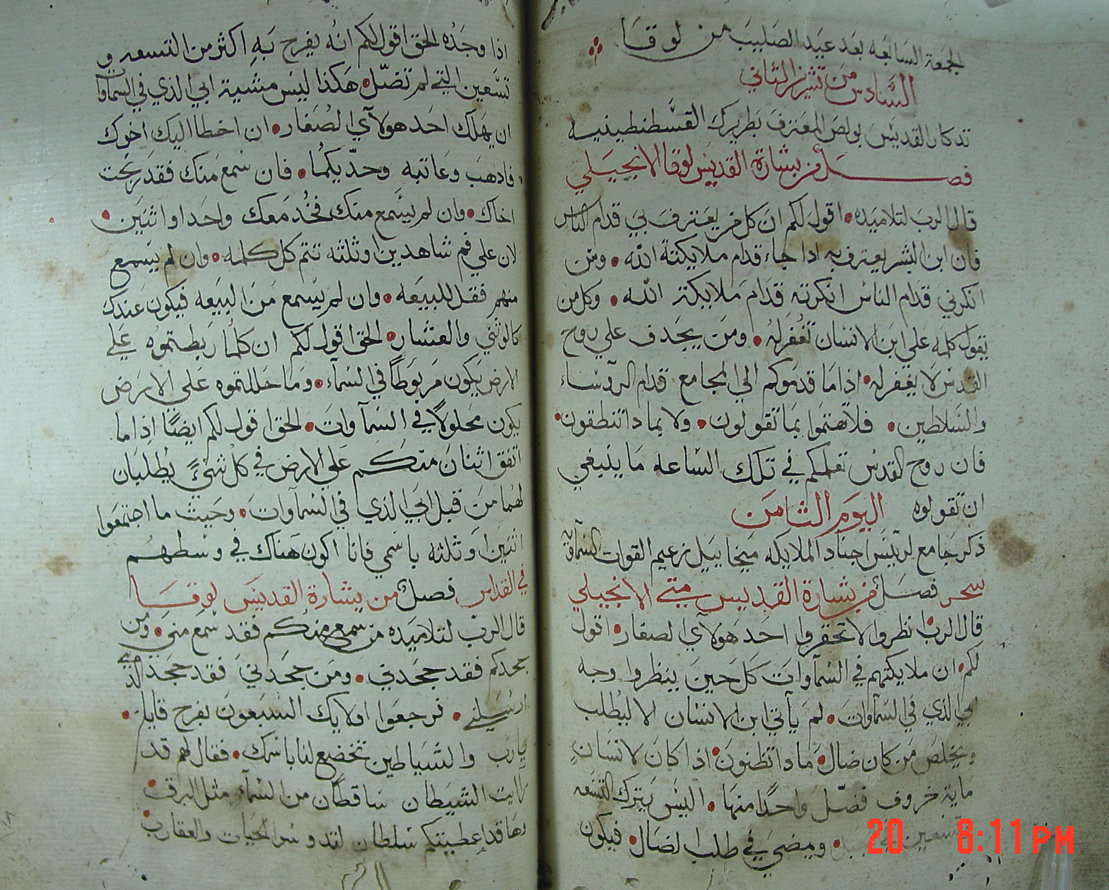 الجمعة السابعه بعد عيد الصليب من لوقا
السادس من تشرين الثاني
تدكار القديس بولص المعترف بطريرك القسطنطينيه
فصل من بشارة القديس لوقا الانجيلي
قال الرب لتلاميده اقول لكم ان كل من يعترف بي قدام الناس
فان ابن البشر يعترف به ادا جاء قدام ملايكة الله ومن
انكرني قدام الناس انكرته قدام ملايكة الله وكل من
يقول كلمه علي ابن الانسان تغفر له ومن يجدف علي روح
القدس لا يغفر له اذا ما قدموكم الي المجامع قدام الروساء
والسلاطين فلا تهتموا بما تقولون ولا بمادا تنطقون
فان روح القدس تعلمكم في تلك الساعه ما ينبغي
ان تقولوه اليوم الثامن
ذكر جامع لرييس اجناد الملايكه ميخاييل زعيم القوات السماويه
سحر فصل من بشارة القديس متي الانجيلي
قال الرب انظروا لا تحقروا احد هولاي الصغار اقول
لكم ان ملايكتهم في السماوات كل حين ينظروا وجه
ابي الذي في السماوات لم يآتي ابن الانسان الا ليطلب
ويخلص من كان ضال مادا تظنون اذا كان لانسان
ماية خروف فضل واحدا منها اليس يترك التسعه
وتسعين ومضي في طلب الضال فيكون
اذا وجده الحق اقول لكم انه يفرح به اكثر من التسعه و
تسعين التي لم تضل هكذا ليس مشية ابي الذي في السماوات
ان يهلك احد هولاي الصغار ان اخطا اليك اخوك
فادهب وعاتبه وحديكما فان سمع منك فقد ربحت
اخاك وان لم يسمع منك فخد معك واحد او اثنين
لان علي فم شاهدين او ثلثه تتم كل كلمه وان لم يسمع
منهم فقل للبيعه وان لم يسمع من البيعه فيكون عندك
كالوثني والعشار الحق اقول لكم ان كلما ربطتموه علي
الارض يكون مربوطا في السماء وما حللتموه علي الارض
يكون محلولا في السماوات الحق اقول لكم ايضا اذا ما
اتفق اثنان منكم علي الارض في كل شي يطلبان
لهما من قبل ابي الذي في السماوات وحيث ما اجتمعوا
اثنين او ثلثه باسمي فانا اكون هناك في وسطهم
في القداس فصل من بشارة القديس لوقا
قال الرب لتلاميده من سمع منكم فقد سمع مني ومن
جحدكم فقد جحدني ومن جحدني فقد جحد الذي
ارسلني فرجعوا اولايك السبعون بفرح قايلين
يارب والشياطين تخضع لنا باسمك فقال لهم قد
رايت الشيطان ساقطا من السماء مثل البرق
وها قد اعطيتكم سلطان لتدوسوا الحيات والعقارب
20 8:11 PM